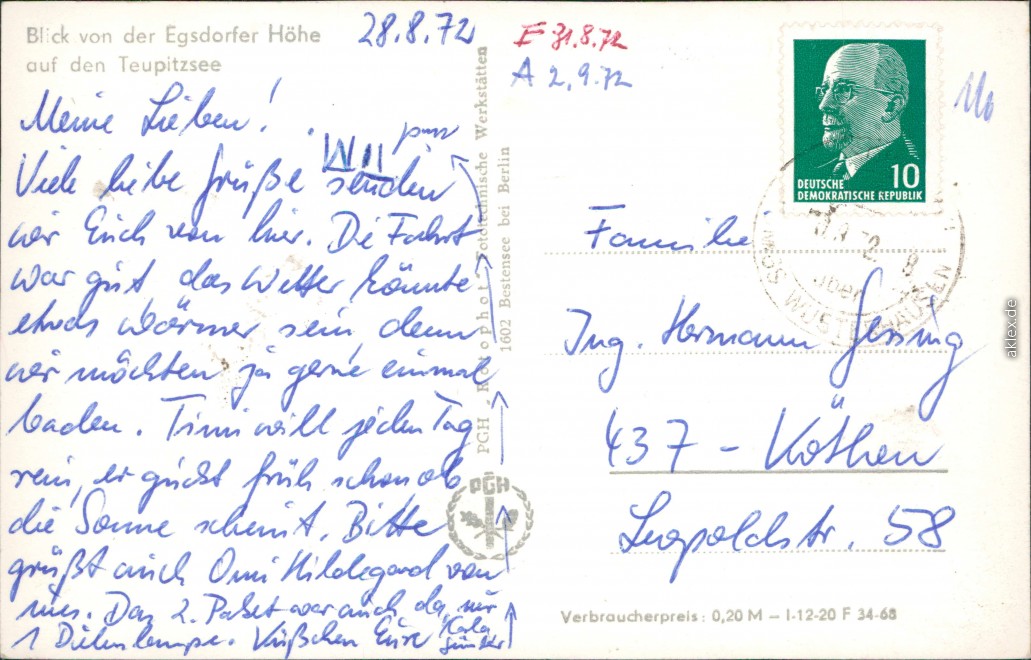 Blick von der Egsdorfer Höhe
auf den Teupitzsee
28.8.72
E 31.8.72
A 2.9.72
Meine Lieben!
Viele liebe Grüße senden
wir Euch von hier. Die Fahrt
war gut das Wetter könnte
etwas wärmer sein, denn
wir möchten ja gerne einmal
baden. Timi will jeden Tag
rein, er guckt früh schon ob
die Sonne scheint. Bitte
grüßt auch Omi Hildegard von
uns. Das 2. Paket war auch da, nur
1 Dielenlampe. Küßchen Eure Karla
Günter
PGH „Rotophot“ Fototechnische Werkstätten
1602 Bestensee bei Berlin
PGH
10
DEUTSCHE
DEMOKRATISCHE REPUBLIK
KÖNIGS WUSTERHAUSEN
über
Familie
Ing. Hermann Jessing
437 - Köthen
Leopoldstr. 58
Verbraucherpreis: 0,20 M – I-12-20 F 34-68
aklex.de